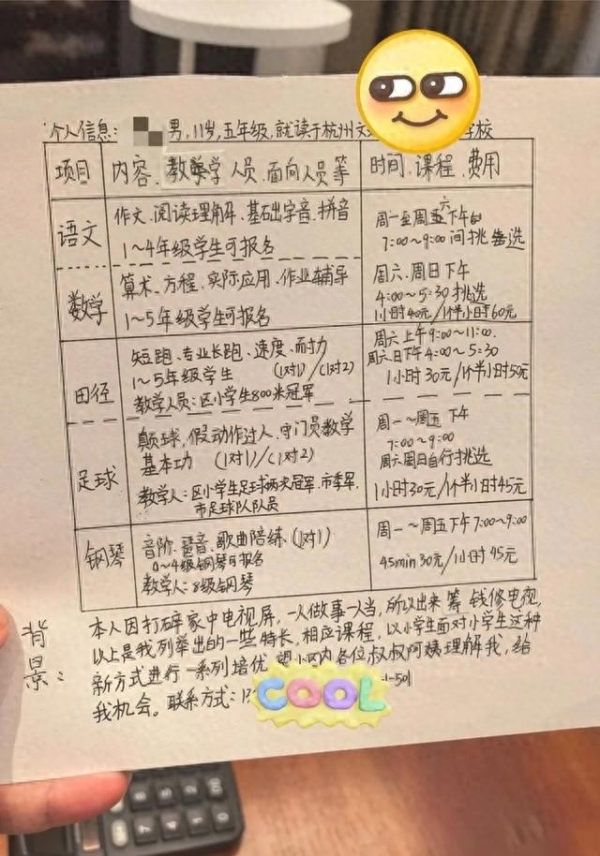 个人信息: 男,11岁,五年级,就读于杭州文 学校
项目 内容、教学 人员、面向人员等 时间、课程、费用
语文
作文、阅读理解、基础字音、拼音
1~4年级学生可报名
周一至周五六下午
7:00~9:00间挑选
数学
算术、方程、实际应用、作业辅导
1~5年级学生可报名
周六、周日下午
4:00~5:30挑选
1小时40元/1个半小时60元
田径
短跑、专业长跑、速度、耐力
1~5年级学生 (1对1)/(1对2)
教学人员:区小学生800米冠军
周六上午9:00~11:00.
周六日下午4:00~5:30
1小时30元/1个半小时50元
足球
颠球,假动作过人、守门员教学
基本功 (1对1)/(1对2)
教学人:区小学生足球两次冠军、市季军、
市足球队队员
周一~周五下午
7:00~9:00
周六周日自行挑选
1小时30元/1个半小时45元
钢琴
音阶、琶音、歌曲陪练、(1对1)
0~4级钢琴可报名
教学人:8级钢琴
周一~周五下午7:00~9:00
45min30元/1小时45元
背景:
本人因打碎家中电视屏,一人做事一人当,所以出来筹钱修电视,
以上是我列举出的一些特长,相应课程,以小学生面对小学生这种
新方式进行一系列培优 望小区内各位叔叔阿姨理解我,给
我机会。联系方式:1 -501
COOL